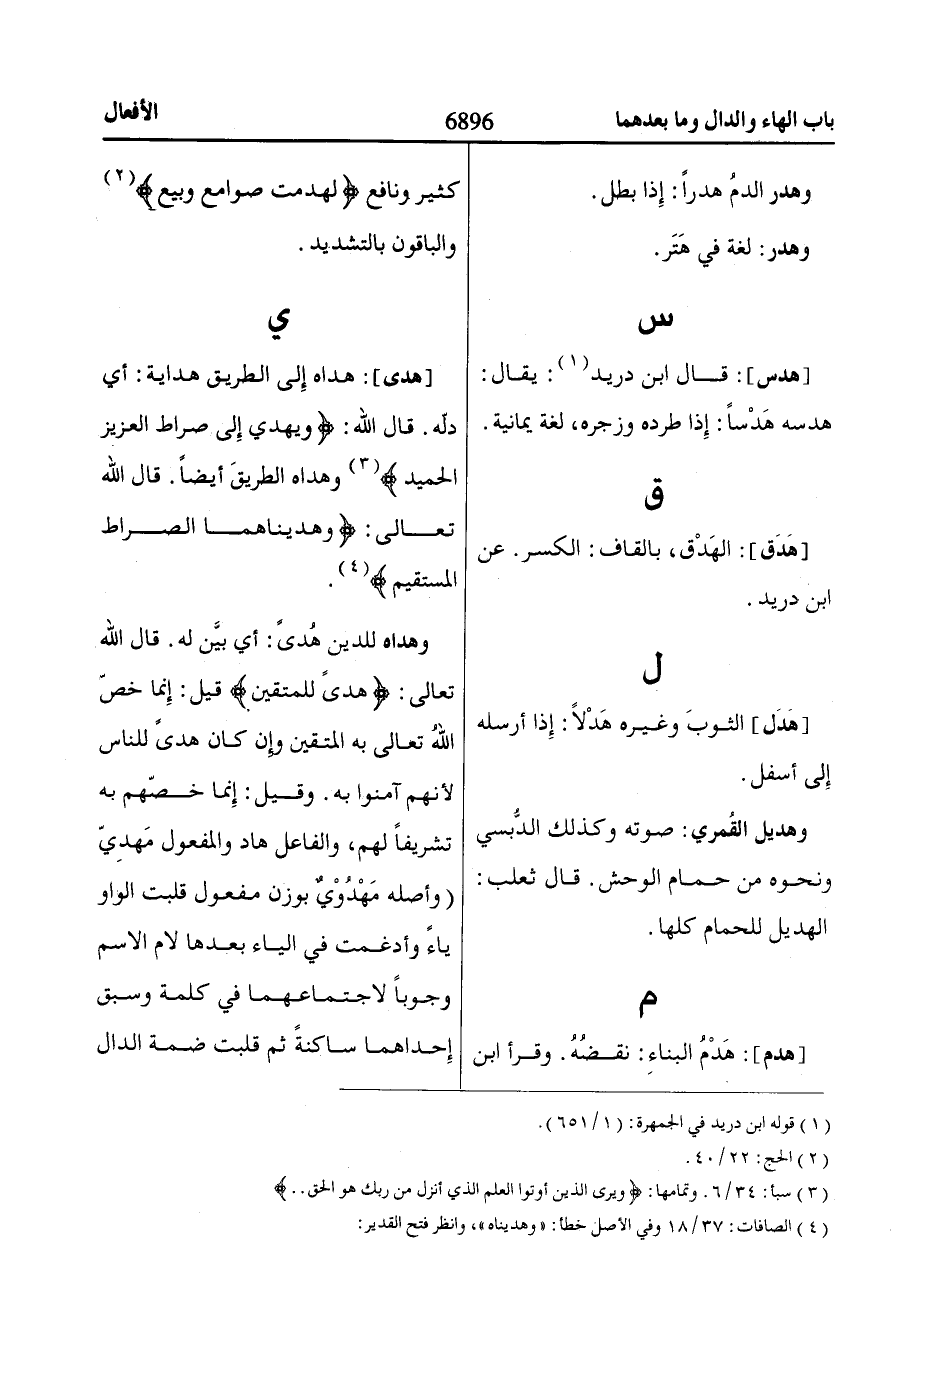 باب الهاء والدال وما بعدهما
6896
الأفعال
وهدر الدمُ هدراً: إذا بطل.
وهدر: لغة في هَتَر.
س
[هدس]: قال ابن دريد(١): يقال:
هدسه هَدْساً: إذا طرده وزجره، لغة يمانية.
ق
[هَدَق]: الهَدْق، بالقاف: الكسر. عن
ابن دريد.
ل
[هَدَل] الثوبَ وغيره هَدْلاً: إذا أرسله
إلى أسفل.
وهديل القُمري: صوته وكذلك الدُّبسي
ونحوه من حمام الوحش. قال ثعلب:
الهديل للحمام كلها.
م
[هدم]: هَدْمُ البناء: نقضُهُ. وقرأ ابن
كثير ونافع ﴿لهدمت صوامع وبيع﴾(٢)
والباقون بالتشديد.
ي
[هدى]: هداه إلى الطريق هداية: أي
دلّه. قال الله: ﴿ويهدي إلى صراط العزيز
الحميد﴾(٣) وهداه الطريقَ أيضاً. قال الله
تعالى: ﴿وهديناهما الصراط
المستقيم﴾(٤).
وهداه للدين هُدىً: أي بيَّن له. قال الله
تعالى: ﴿هدىً للمتقين﴾ قيل: إنما خصّ
اللهُ تعالى به المتقين وإن كان هدىً للناس
لأنهم آمنوا به. وقيل: إنما خصّهم به
تشريفاً لهم، والفاعل هاد والمفعول مَهديّ
(وأصله مَهْدُوْيٌ بوزن مفعول قلبت الواو
ياءً وأدغمت في الياء بعدها لام الاسم
وجوباً لاجتماعهما في كلمة وسبق
إحداهما ساكنةً ثم قلبت ضمة الدال
(١) قوله ابن دريد في الجمهرة: (٦٥١/١).
(٢) الحج: ٤٠/٢٢.
(٣) سبأ: ٦/٣٤. وتمامها: ﴿ويرى الذين أوتوا العلم الذي أنزل من ربك هو الحق..﴾
(٤) الصافات: ١٨/٣٧ وفي الأصل خطأ: «وهديناه»، وانظر فتح القدير: